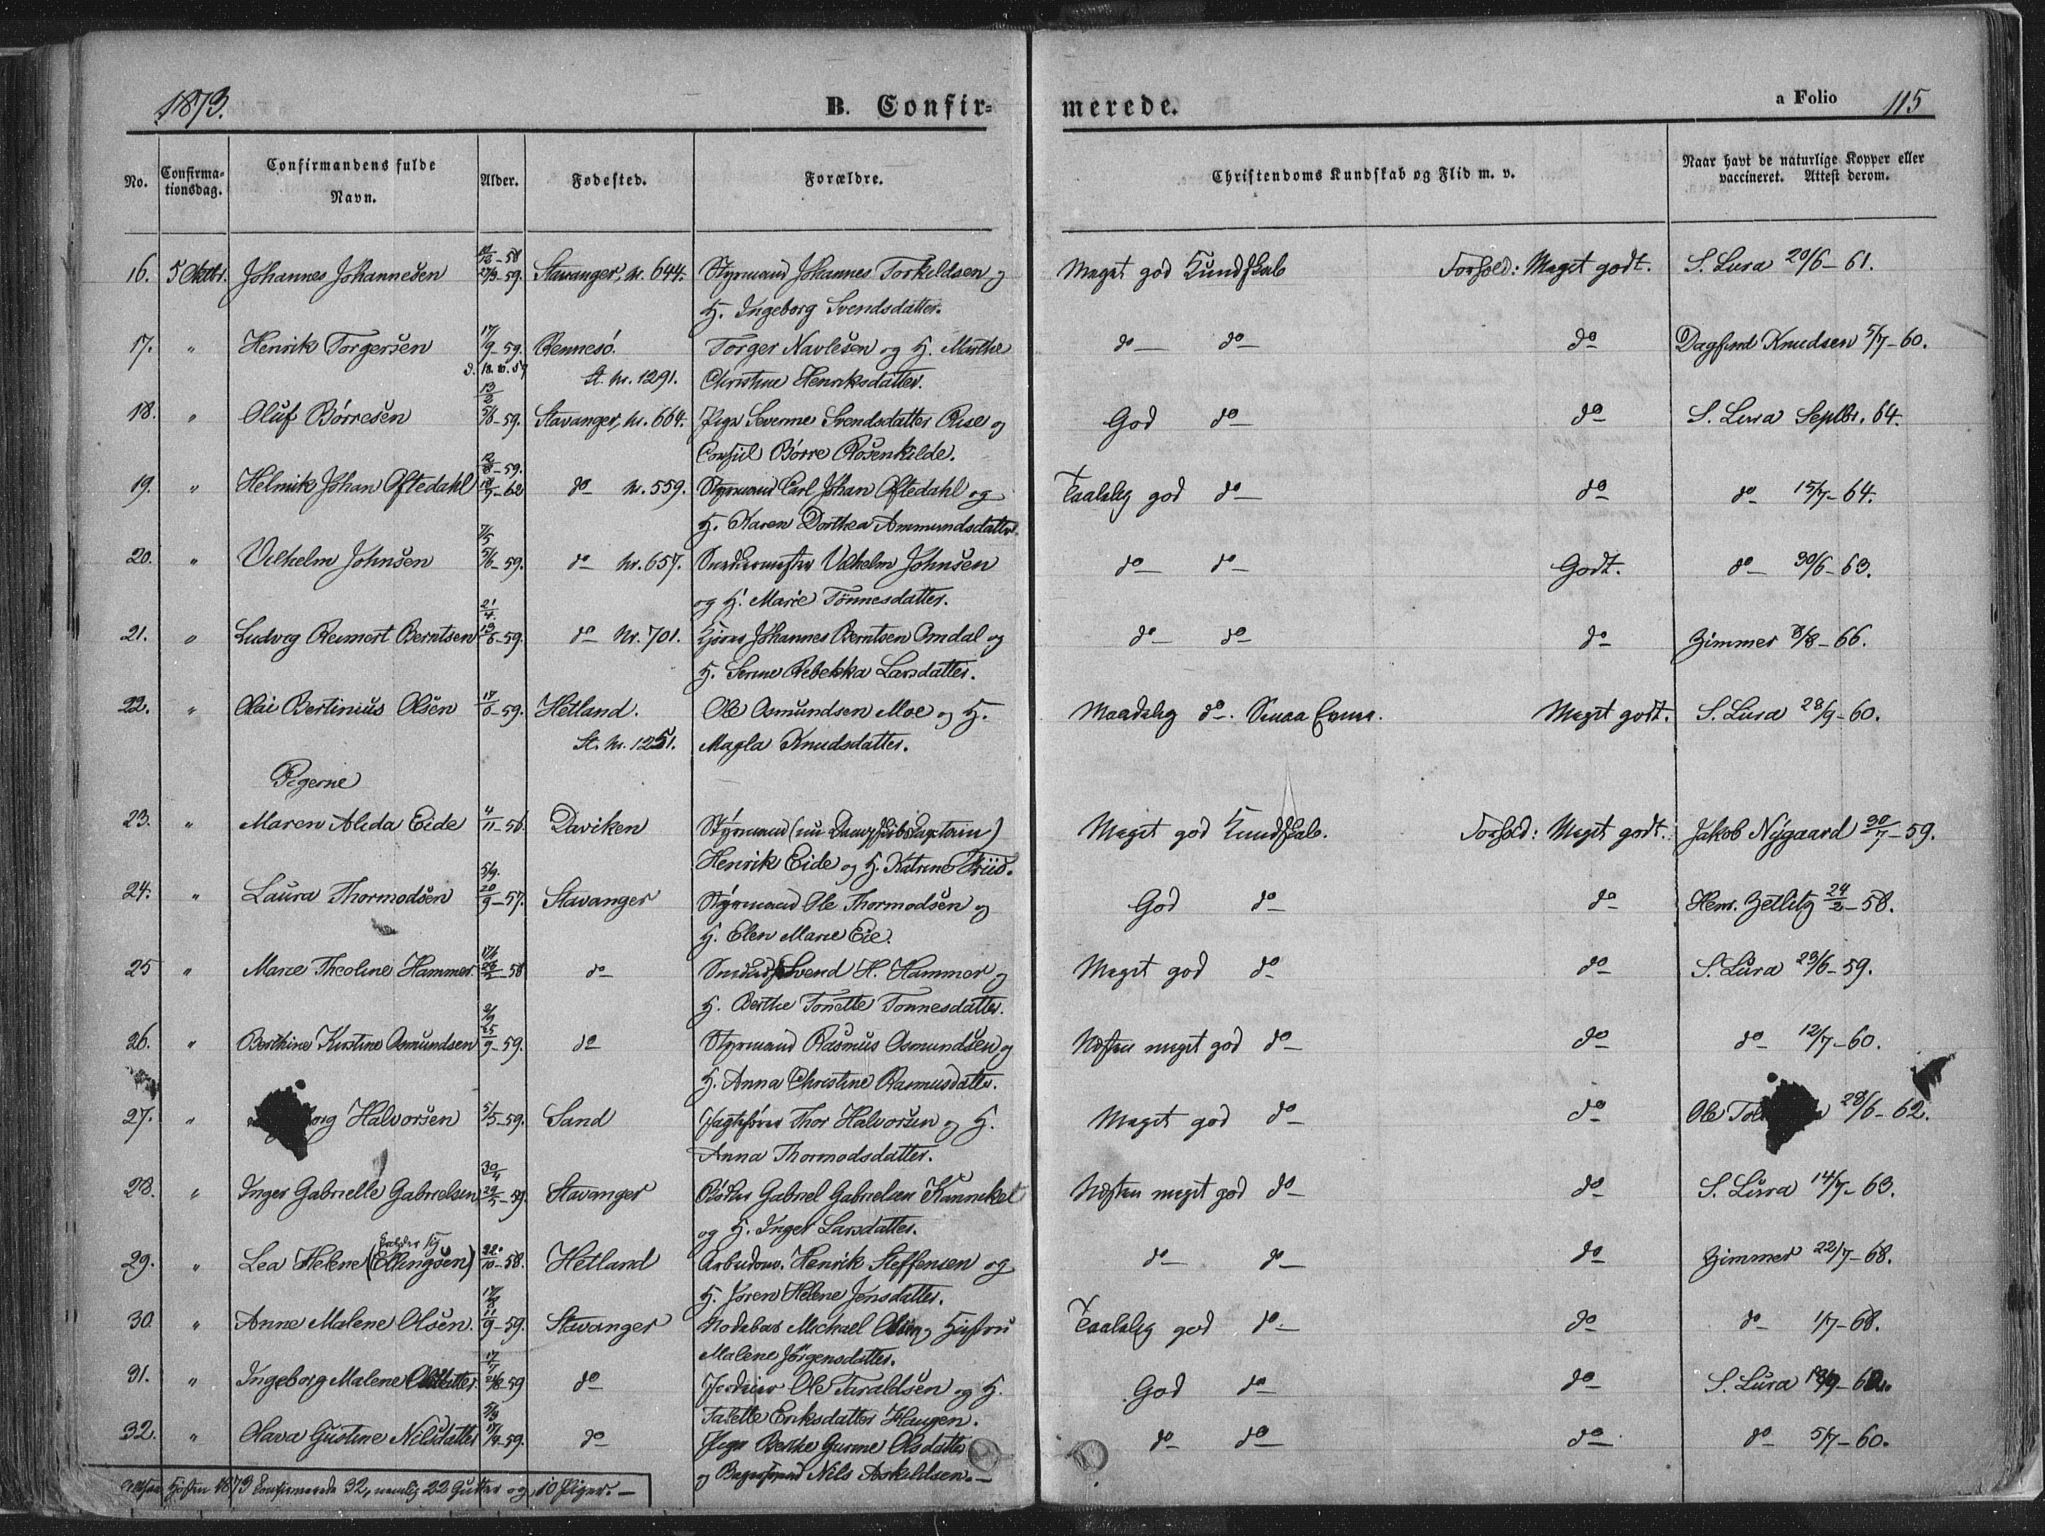 1873.
B. Confir-
merede.
a Folio 115
No.
Confirma-
tionsdag.
Confirmandens fulde
Navn.
Alder.
Fødested.
Forældre.
Christendoms Kundskab og Flid m. v.
Naar havt de naturlige Kopper eller
vaccineret. Attest derom.
16. 5 Oktbr. Johannes Johannesen 27/3-59. Stavanger, Nr. 644. Styrmand Johannes Torkildsen og Meget god Kundskab Forhold: Meget godt. S. Lura 20/6-61.
H. Ingeborg Svendsdatter.
17. " Henrik Torgersen 17/9-59. Rennesö. Torger Navlesen og H. Marthe do do do Dagfind Knudsen 5/7-60.
St. Nr. 1291. Christine Henriksdatter.
18. " Oluf Börresen 5/8-59. Stavanger, Nr. 664. Pige Severine Svendsdatter Rise og God do do S. Lura Septbr. 64.
Consul Börre Rosenkilde.
19. " Helmik Johan Oftedahl 12/8-59. do Nr. 559. Styrmand Carl Johan Oftedahl og Taalelig god do do do 15/7-64.
H. Karen Dorthea Ammundsdatter
20. " Vilhelm Johnsen 5/6-59. do Nr. 657. Snedkermester Vilhelm Johnsen do do Godt. do 30/6-63.
og H. Marie Tönnesdatter.
21. " Ludvig Reimert Berntsen 13/6-59. do Nr. 701. Johannes Berntsen Omdal og do do do Zimmer 8/8-66.
H. Serine Rebekka Larsdatter.
22. " Olai Bertinius Olsen 17/6-59. Hetland. Ole Osmundsen Moe og H. Maadelig do. Smaa Evner. Meget godt. S. Lura 28/9-60.
St. Nr. 1251. Magla Knudsdatter.
Pigerne
23. " Maren Alida Eide 4/11-56 Daviken Styrmand (nu Dampskibskaptein) Meget god Kundskab. Forhold: Meget godt. Jakob Nygaard 30/7-59.
Henrik Eide og H. Katrine Friis.
24. " Laura Thormodsen 20/9-57. Stavanger Styrmand Ole Thormodsen og God do do Henr. Zetlitz 24/2-58.
H. Elen Marie Eie.
25 " Marie Theoline Hammer. 23/2-58 do Svend H. Hammer og Meget god do do S. Lura 23/6-59.
H. Berthe Tonette Tonnesdatter.
26. " Berthine Kirstine Osmundsen 25/9-59. do Styrmand Rasmus Osmundsen og Næsten meget god do do do 12/7-60.
H. Anna Christine Rasmusdatter.
27. " borg Halvorsen 5/5-59. Sand Jagtfører Thor Halvorsen og H. Meget god do do Ole 28/6-62.
Anna Thormodsdatter.
28. " Inger Gabrielle Gabrielsen 29/5-59. Stavanger Bödker Gabriel Gabrielsen Kanneket Næsten meget god do do S. Lura 14/7-63.
og H. Inger Larsdatter.
29. " Lea Helene (Ellingsen) 22/10-58. Hetland Arbeidsm. Henrik Steffensen og do do do Zimmer 22/7-68.
H. Joren Helene Jensdatter.
30. " Anne Malene Olsen. 11/9-59. Stavanger Michael Olsen og Hustru Taalelig god do do do 1/7-68.
Malene Jörgensdatter.
31. " Ingeborg Malene Olsdatter. 21/8-59 do Ole Taraldsen og H. God do do S. Lura
Talette Eriksdatter Haugen.
32. " Olava Gustine Nilsdatter 17/9-59. do Pige Berthe Gurine Olsdatter do do do do 5/7-60.
og Nils Askildsen.
Altsaa Hösten 1873 Confirmerede 32, nemlig 22 Gutter og 10 Piger.